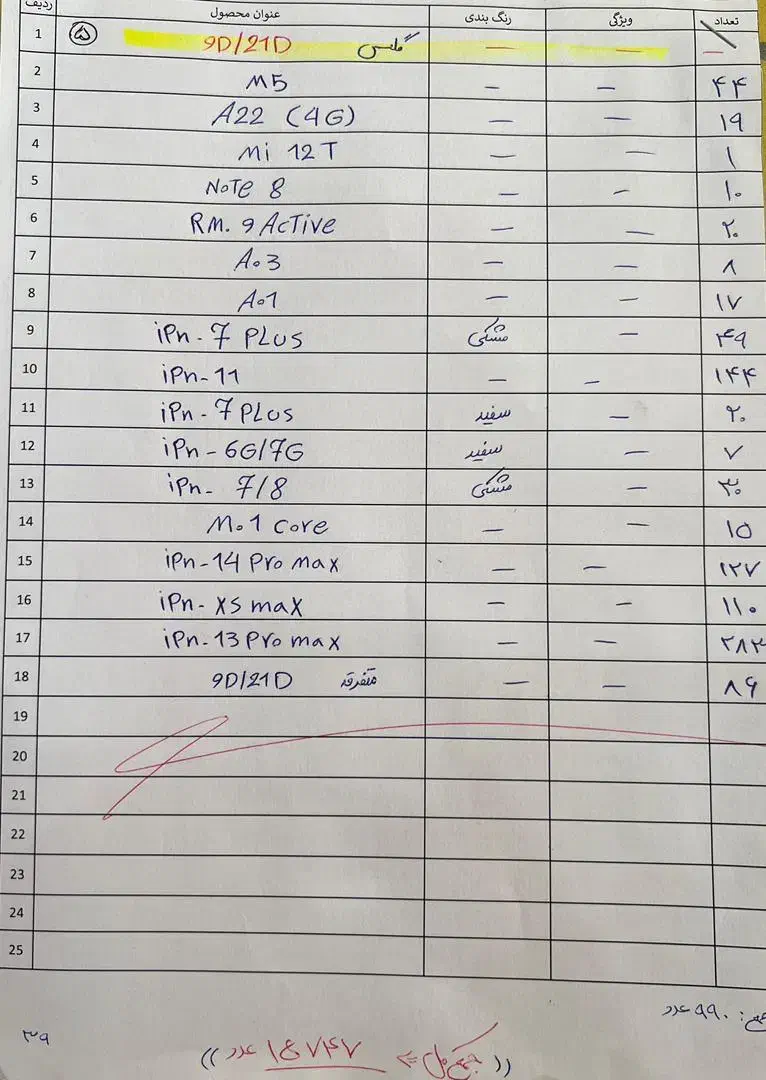 ردیف عنوان محصول رنگ بندی ویژگی تعداد
1 ۵ گلس 9D/21D — — —
2 M5 — — ۴۴
3 A22 (4G) — — ۱۹
4 Mi 12T — — ۱
5 NOTE 8 — — ۱۰
6 RM. 9 Active — — ۲۰
7 A03 — — ۸
8 A01 — — ۱۷
9 iPn - 7 PLUS مشکی — ۴۹
10 iPn - 11 — — ۱۴۴
11 iPn - 7 PLUS سفید — ۲۰
12 iPn - 6G/7G سفید — ۷
13 iPn - 7/8 مشکی — ۳۰
14 M01 core — — ۱۵
15 iPn - 14 Pro max — — ۱۲۷
16 iPn - XS max — — ۱۱۰
17 iPn - 13 Pro max — — ۲۸۳
18 متفرقه 9D/21D — — ۸۶
19
20
21
22
23
24
25
جمع: ۹۹۰ عدد
۳۹
(( جمع کل ⇐ ۱۶۷۴۷ عدد ))